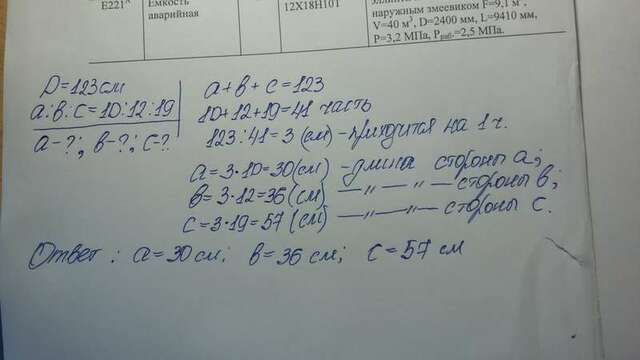 Е221
Емкость
аварийная
12Х18Н10Т
наружным змеевиком F=9,1 м²,
V=40 м³, D=2400 мм, L=9410 мм,
P=3,2 МПа, Pраб.=2,5 МПа.
D=123см
а:в:с=10:12:19
а-?; в-?; с-?
а+в+с=123
10+12+19=41 часть
123:41=3 (см) -приходится на 1 ч.
а=3·10=30(см) -длина стороны а;
в=3·12=36(см) —〃—〃— стороны в;
с=3·19=57(см) —〃—〃— стороны с.
Ответ: а=30см; в=36 см; с=57 см